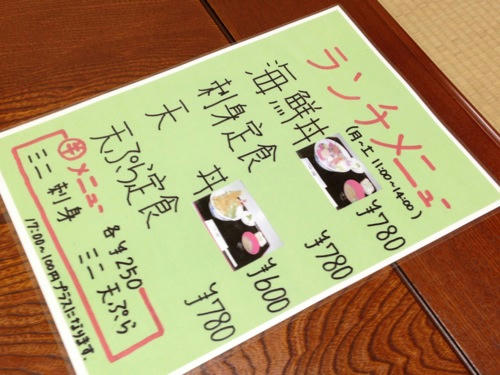 ランチメニュー
(月〜土 11:00〜14:00)
海鮮丼 ¥780
刺身定食 ¥780
天丼 ¥600
天ぷら定食 ¥780
半メニュー 各¥250
ミニ刺身 ミニ天ぷら
17:00〜100円プラスになります。